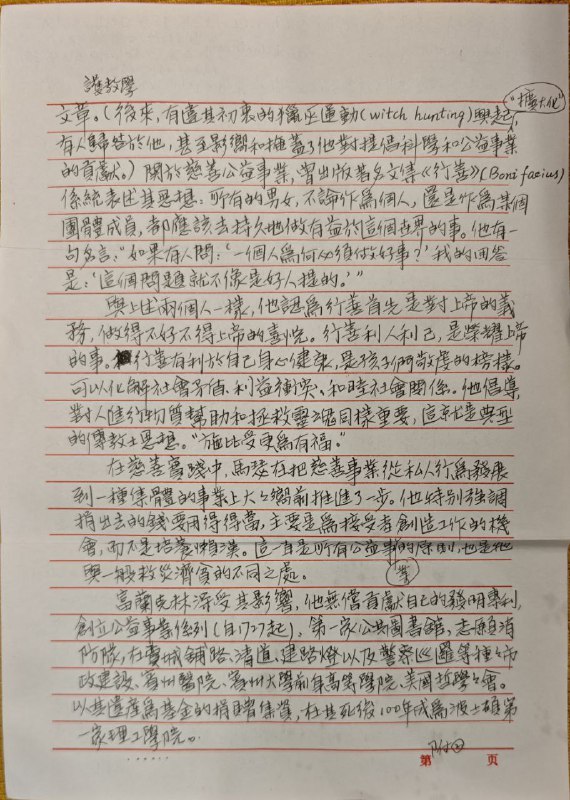 護教學
文章。(後來,有違其初衷的獵巫運動(witch hunting)興起, "擴大化"
有人歸咎於他,甚至影嚮和掩蓋了他對提倡科學和公益事業
的貢獻。)關於慈善公益事業,曾出版著名文集《行善》(Bonifacius)
係統表述其思想:所有的男女,不論作為個人,還是作為某個
團體成員,都應該去持久地做有益於這個世界的事。他有一
句名言:"如果有人問:'一個人為何必須做好事?'我的回答
是:'這個問題就不像是好人提的。'"
與上述兩個人一樣,他認為行善首先是對上帝的義
務,做得不好不得上帝的喜悅。行善利人利己,是榮耀上帝
的事。行善有利於自己身心健康,是孩子們敬虔的榜樣。
可以化解社會矛盾、利益衝突、和睦社會關係。他倡導,
對人進行物質幫助和拯救靈魂同樣重要,這就是典型
的傳教士思想。"施比受更為有福。"
在慈善實踐中,馬瑟在把慈善事業從私人行為發展
到一種集體的事業上大大嚮前推進了一步。他特別強調
捐出去的錢要用得得當,主要是為接受者創造工作的機
會,而不是培養懶漢。這一直是所有公益事的原則,也是他
與一般救災濟貧的不同之處。 業
富蘭克林深受其影響,他無償貢獻自己的發明專利,
創立公益事業係列(自1727起),第一家公共圖書館,志願消
防隊,在費城鋪路、清道、建路燈以及警察巡邏等種種市
政建設、賓州醫院、賓州大學前身高等學院、美國哲學學會。
以其遺產為基金的捐贈集資,在其死後100年成為波士頓第
一家理工學院。
附④
第 页